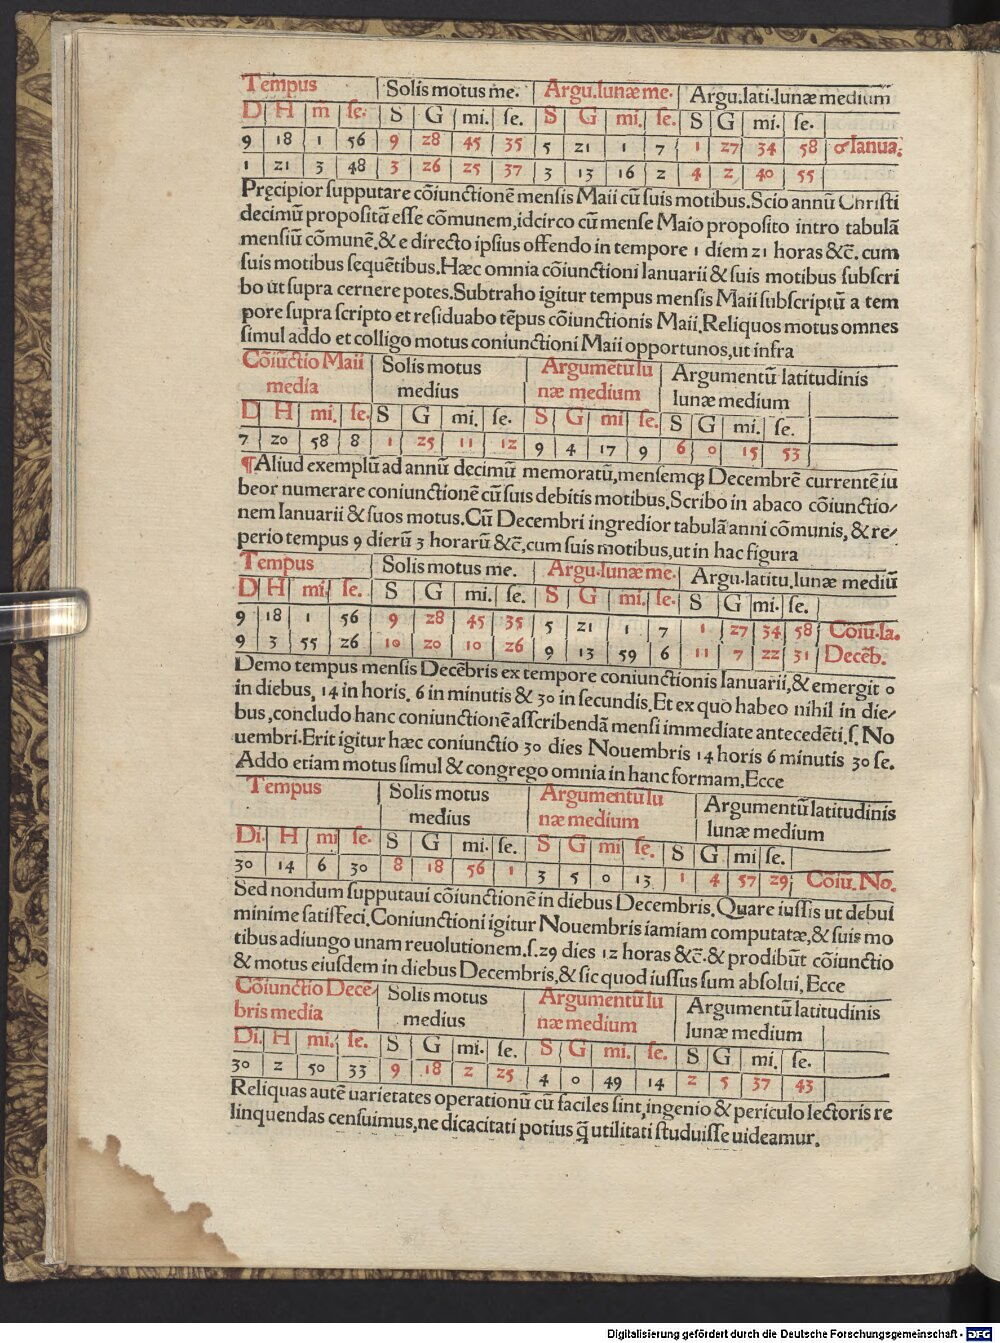 Tempus | Solis motus me. | Argu.lunæ me. | Argu.lati.lunæ medium
D H m̄ se. S G mi. se. S G mi. se. S G mi. se.
9 18 1 56 9 28 45 35 5 21 1 7 1 27 34 58 ☌Ianua:
1 21 3 48 3 26 25 37 3 13 16 2 4 2 40 55
Pręcipior supputare cōiunctionē mensis Maii cū suis motibus.Scio annū Christi
decimū propositū esse cōmunem,idcirco cū mense Maio proposito intro tabulā
mensiū cōmunē.& e directo ipsius offendo in tempore 1 diem 21 horas &c̄. cum
suis motibus sequētibus.Hæc omnia cōiunctioni Ianuarii & suis motibus subscri
bo ut supra cernere potes.Subtraho igitur tempus mensis Maii subscriptū a tem
pore supra scripto et residuabo tēpus cōiunctionis Maii.Reliquos motus omnes
simul addo et colligo motus coniunctioni Maii opportunos,ut infra
Cōiūctio Maii | Solis motus | Argumētū lu | Argumentū latitudinis
media | medius | næ medium | lunæ medium
D H mi. se. S G mi. se. S G mi se. S G mi. se.
7 20 58 8 1 25 11 12 9 4 17 9 6 0 15 53
¶Aliud exemplū ad annū decimū memoratū,mensemqꝫ Decembrē currentē iu
beor numerare coniunctionē cū suis debitis motibus.Scribo in abaco cōiunctio/
nem Ianuarii & suos motus.Cū Decembri ingredior tabulā anni cōmunis, & re/
perio tempus 9 dierū 3 horarū &c̄.cum suis motibus,ut in hac figura
Tempus | Solis motus me. | Argu.lunæ me. | Argu.latitu.lunæ mediū
D H mi. se. S G mi. se. S G mi. se. S G mi. se.
9 18 1 56 9 28 45 35 5 21 1 7 1 27 34 58 Cōiu.Ia.
9 3 55 26 10 20 10 26 9 13 59 6 11 7 22 31 Decēb.
Demo tempus mensis Decēbris ex tempore coniunctionis Ianuarii,& emergit 0
in diebus, 14 in horis. 6 in minutis & 30 in secundis.Et ex quo habeo nihil in die/
bus,concludo hanc coniunctionē asscribendā mensi immediate antecedēti.s. No
uembri.Erit igitur hæc coniunctio 30 dies Nouembris 14 horis 6 minutis 30 se.
Addo etiam motus simul & congrego omnia in hanc formam.Ecce
Tempus | Solis motus | Argumentū lu | Argumentū latitudinis
medius | næ medium | lunæ medium
Di. H mi se. S G mi. se. S G mi se. S G mi se.
30 14 6 30 8 18 56 1 3 5 0 13 1 4 57 29 Cōiū. No.
Sed nondum supputaui cōiunctionē in diebus Decembris.Quare iussis ut debui
minime satisfeci.Coniunctioni igitur Nouembris iamiam computatæ,& suis mo
tibus adiungo unam reuolutionem.s.29 dies 12 horas &c̄.& prodibūt cōiunctio
& motus eiusdem in diebus Decembris,& sic quod iussus sum absolui, Ecce
Cōiunctio Decē/ | Solis motus | Argumentū lu | Argumentū latitudinis
bris media | medius | næ medium | lunæ medium
Di. H mi. se. S G mi. se. S G mi. se. S G mi. se.
30 2 50 33 9 18 2 25 4 0 49 14 2 5 37 43
Reliquas autē uarietates operationū cū faciles sint,ingenio & periculo lectoris re
linquendas censuimus,ne dicacitati potius q̄ utilitati studuisse uideamur.
Digitalisierung gefördert durch die Deutsche Forschungsgemeinschaft - DFG